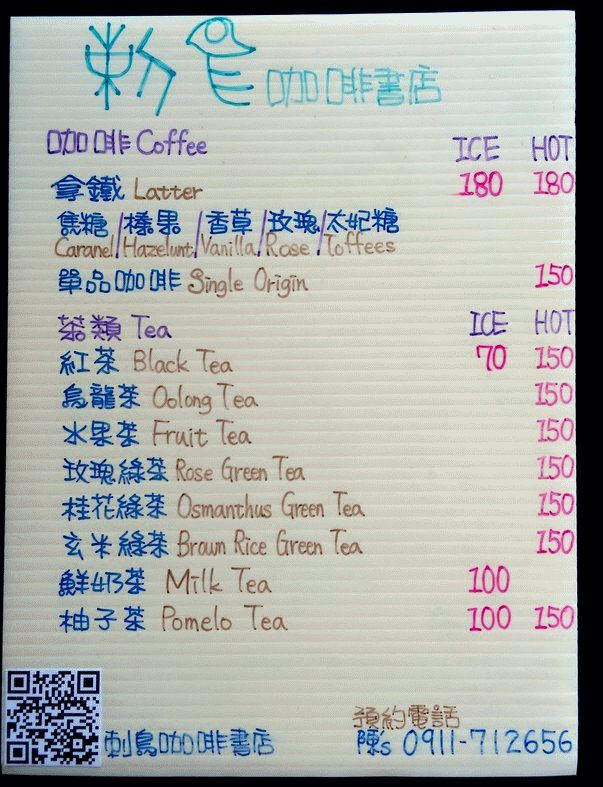 刺鳥咖啡書店
咖啡 Coffee ICE HOT
拿鐵 Latter 180 180
焦糖/榛果/香草/玫瑰/太妃糖
Caranel/Hazelunt/Vanilla/Rose/Toffees
單品咖啡 Single Origin 150
茶類 Tea ICE HOT
紅茶 Black Tea 70 150
烏龍茶 Oolong Tea 150
水果茶 Fruit Tea 150
玫瑰綠茶 Rose Green Tea 150
桂花綠茶 Osmanthus Green Tea 150
玄米綠茶 Braun Rice Green Tea 150
鮮奶茶 Milk Tea 100
柚子茶 Pomelo Tea 100 150
預約電話
刺鳥咖啡書店 陳's 0911-712656